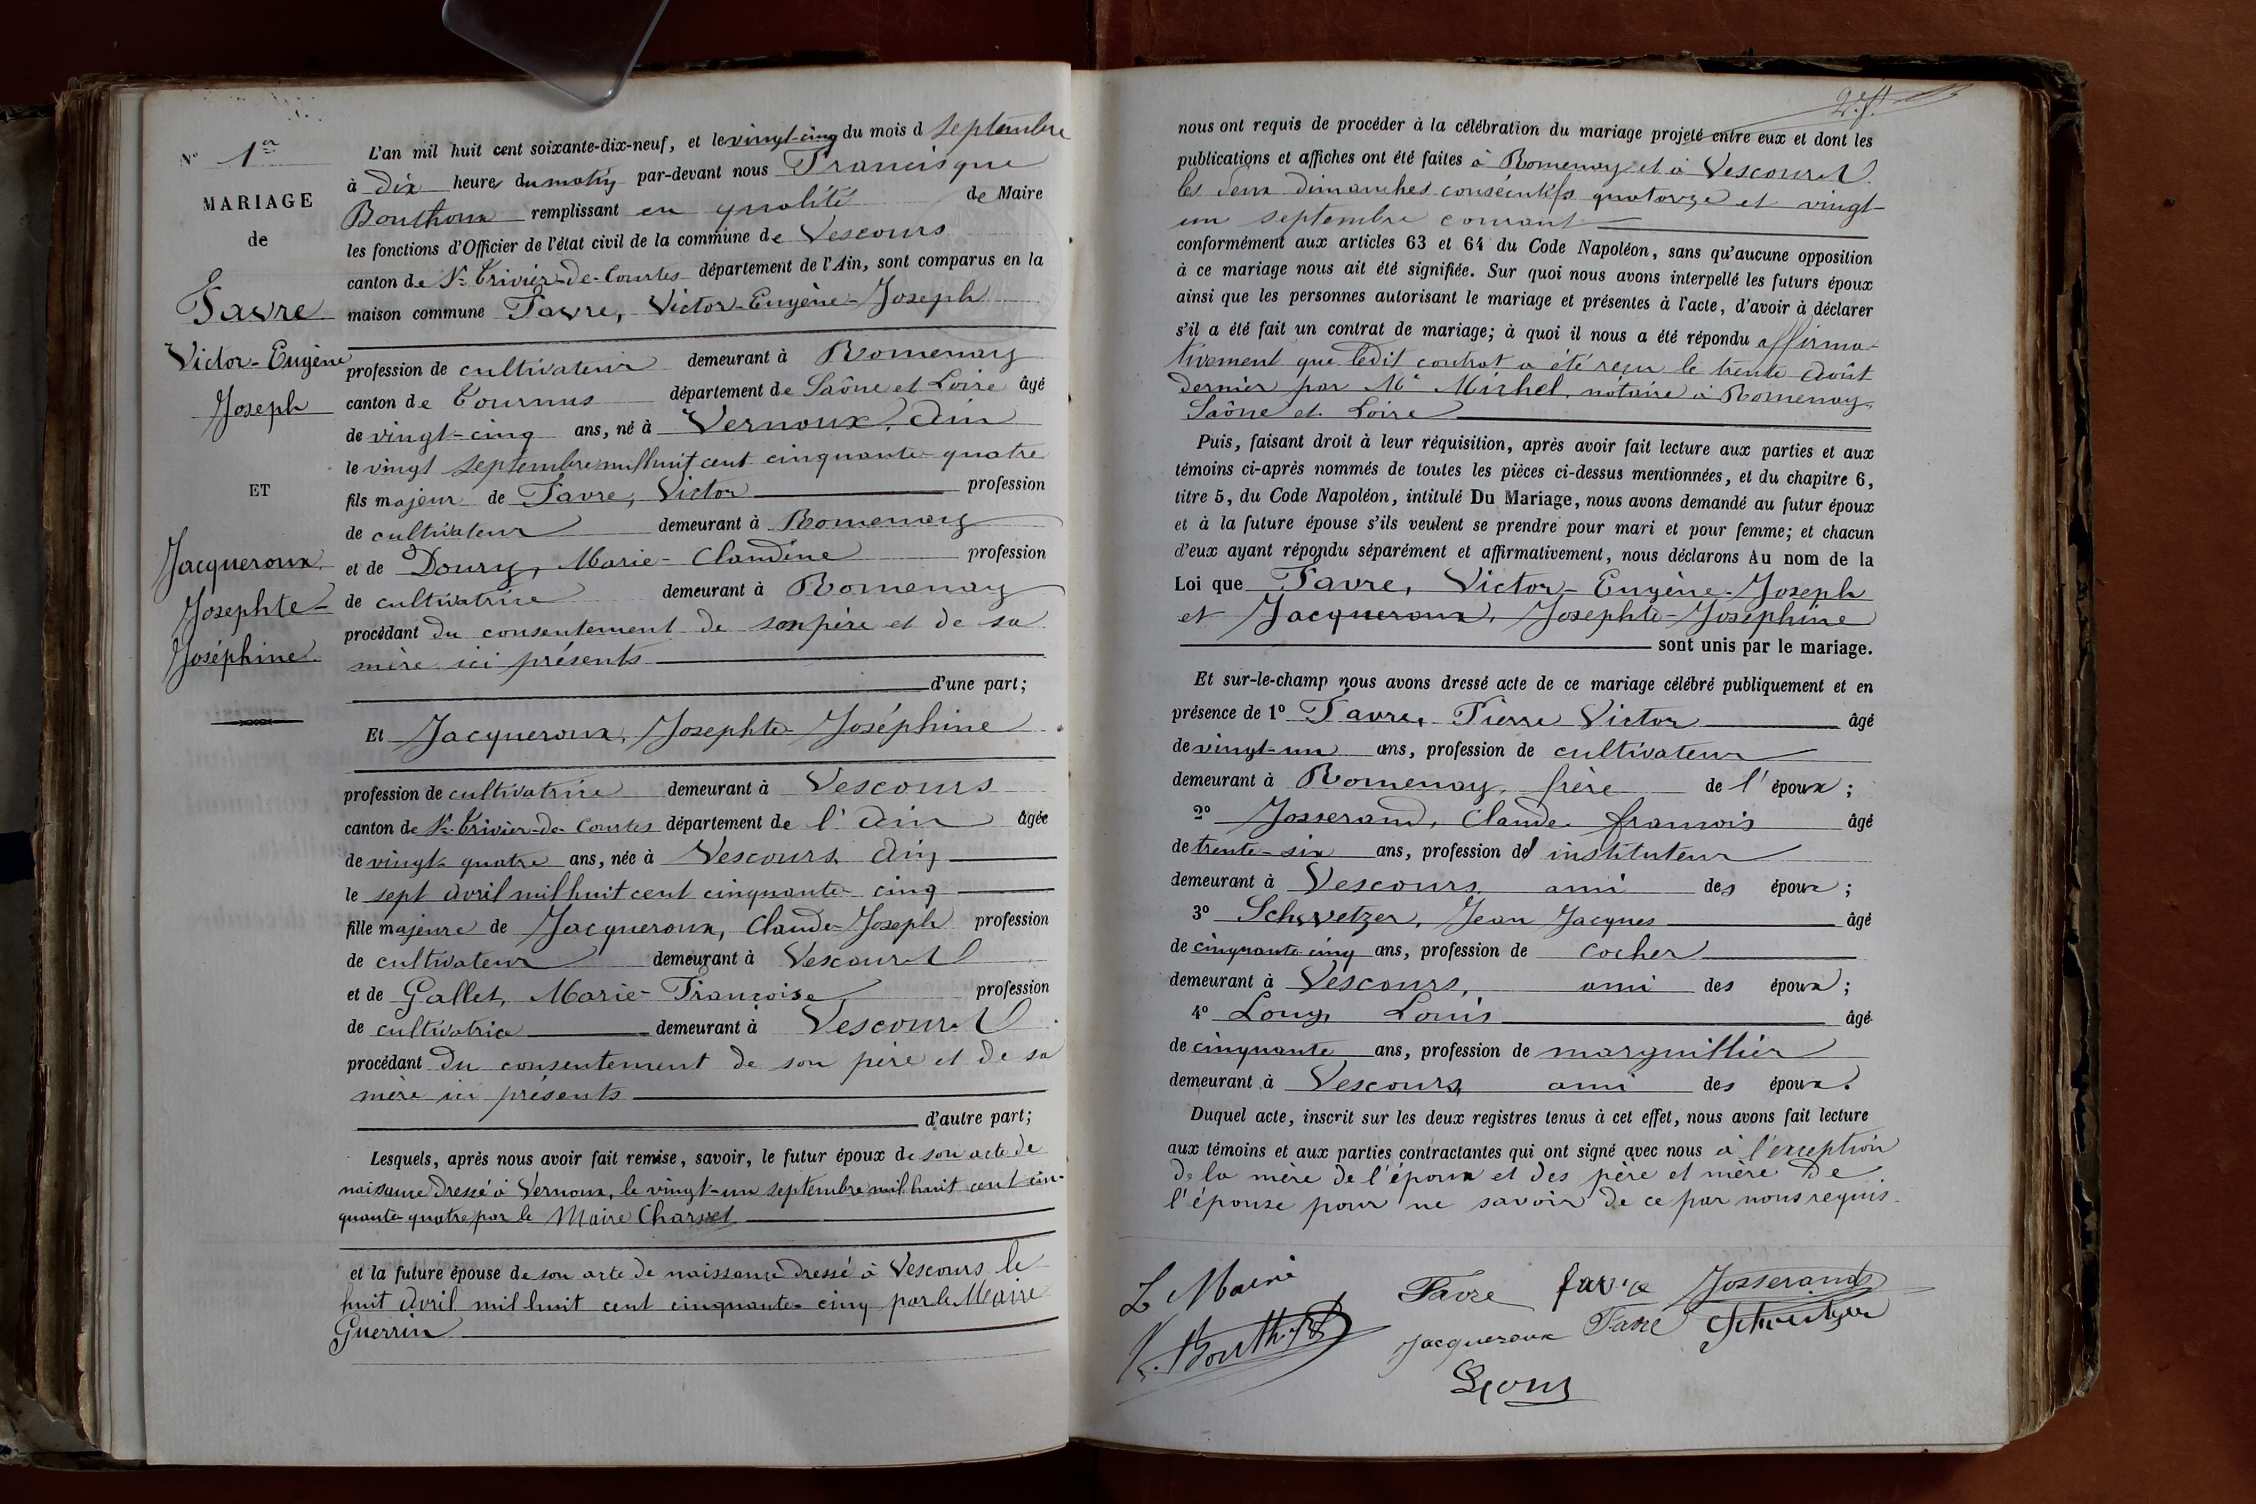 N° 1er
MARIAGE
de
Favre
Victor-Eugène
Joseph
ET
Jacqueroux
Josephte-
Joséphine
L'an mil huit cent soixante-dix-neuf, et le vingt-cinq du mois d septembre
à dix heures du matin par-devant nous Francisque
Bouthoux remplissant en qualité de Maire
les fonctions d'Officier de l'état civil de la commune de Vescours
canton de St-Trivier-de-Courtes département de l'Ain, sont comparus en la
maison commune Favre, Victor-Eugène-Joseph
profession de cultivateur demeurant à Romenay
canton de Tournus département de Saône et Loire âgé
de vingt-cinq ans, né à Vernoux, Ain
le vingt septembre mil huit cent cinquante-quatre
fils majeur de Favre, Victor profession
de cultivateur demeurant à Romenay
et de Doury, Marie-Claudine profession
de cultivatrice demeurant à Romenay
procédant du consentement de son père et de sa
mère ici présents
d'une part;
Et Jacqueroux, Josephte-Joséphine
profession de cultivatrice demeurant à Vescours
canton de St-Trivier-de-Courtes département de l'Ain âgée
de vingt-quatre ans, née à Vescours, Ain
le sept avril mil huit cent cinquante-cinq
fille majeure de Jacqueroux, Claude-Joseph profession
de cultivateur demeurant à Vescours
et de Gallet, Marie-Françoise profession
de cultivatrice demeurant à Vescours
procédant du consentement de son père et de sa
mère ici présents
d'autre part;
Lesquels, après nous avoir fait remise, savoir, le futur époux de son acte de
naissance dressé à Vernoux, le vingt-un septembre mil huit cent cin-
quante-quatre par le Maire Charvet
et la future épouse de son acte de naissance dressé à Vescours le
huit avril mil huit cent cinquante-cinq par le Maire
Guerrin
nous ont requis de procéder à la célébration du mariage projeté entre eux et dont les
publications et affiches ont été faites à Romenay et à Vescours
les deux dimanches consécutifs quatorze et vingt-
un septembre courant
conformément aux articles 63 et 64 du Code Napoléon, sans qu'aucune opposition
à ce mariage nous ait été signifiée. Sur quoi nous avons interpellé les futurs époux
ainsi que les personnes autorisant le mariage et présentes à l'acte, d'avoir à déclarer
s'il a été fait un contrat de mariage; à quoi il nous a été répondu affirma-
tivement que ledit contrat a été reçu le trente août
dernier par Me Michel, notaire à Romenay,
Saône et Loire
Puis, faisant droit à leur réquisition, après avoir fait lecture aux parties et aux
témoins ci-après nommés de toutes les pièces ci-dessus mentionnées, et du chapitre 6,
titre 5, du Code Napoléon, intitulé Du Mariage, nous avons demandé au futur époux
et à la future épouse s'ils veulent se prendre pour mari et pour femme; et chacun
d'eux ayant répondu séparément et affirmativement, nous déclarons Au nom de la
Loi que Favre, Victor-Eugène-Joseph
et Jacqueroux, Josephte-Joséphine
sont unis par le mariage.
Et sur-le-champ nous avons dressé acte de ce mariage célébré publiquement et en
présence de 1° Favre, Pierre Victor âgé
de vingt-un ans, profession de cultivateur
demeurant à Romenay, frère de l'époux;
2° Josserand, Claude françois âgé
de trente-six ans, profession d'instituteur
demeurant à Vescours, ami des époux;
3° Schwetzer, Jean Jacques âgé
de cinquante cinq ans, profession de cocher
demeurant à Vescours, ami des époux;
4° Louis âgé
de cinquante ans, profession de marguillier
demeurant à Vescours, ami des époux.
Duquel acte, inscrit sur les deux registres tenus à cet effet, nous avons fait lecture
aux témoins et aux parties contractantes qui ont signé avec nous à l'exception
de la mère de l'époux et des père et mère de
l'épouse pour ne savoir de ce par nous requis.
Le Maire Favre favre Josserand
Jacqueroux Favre